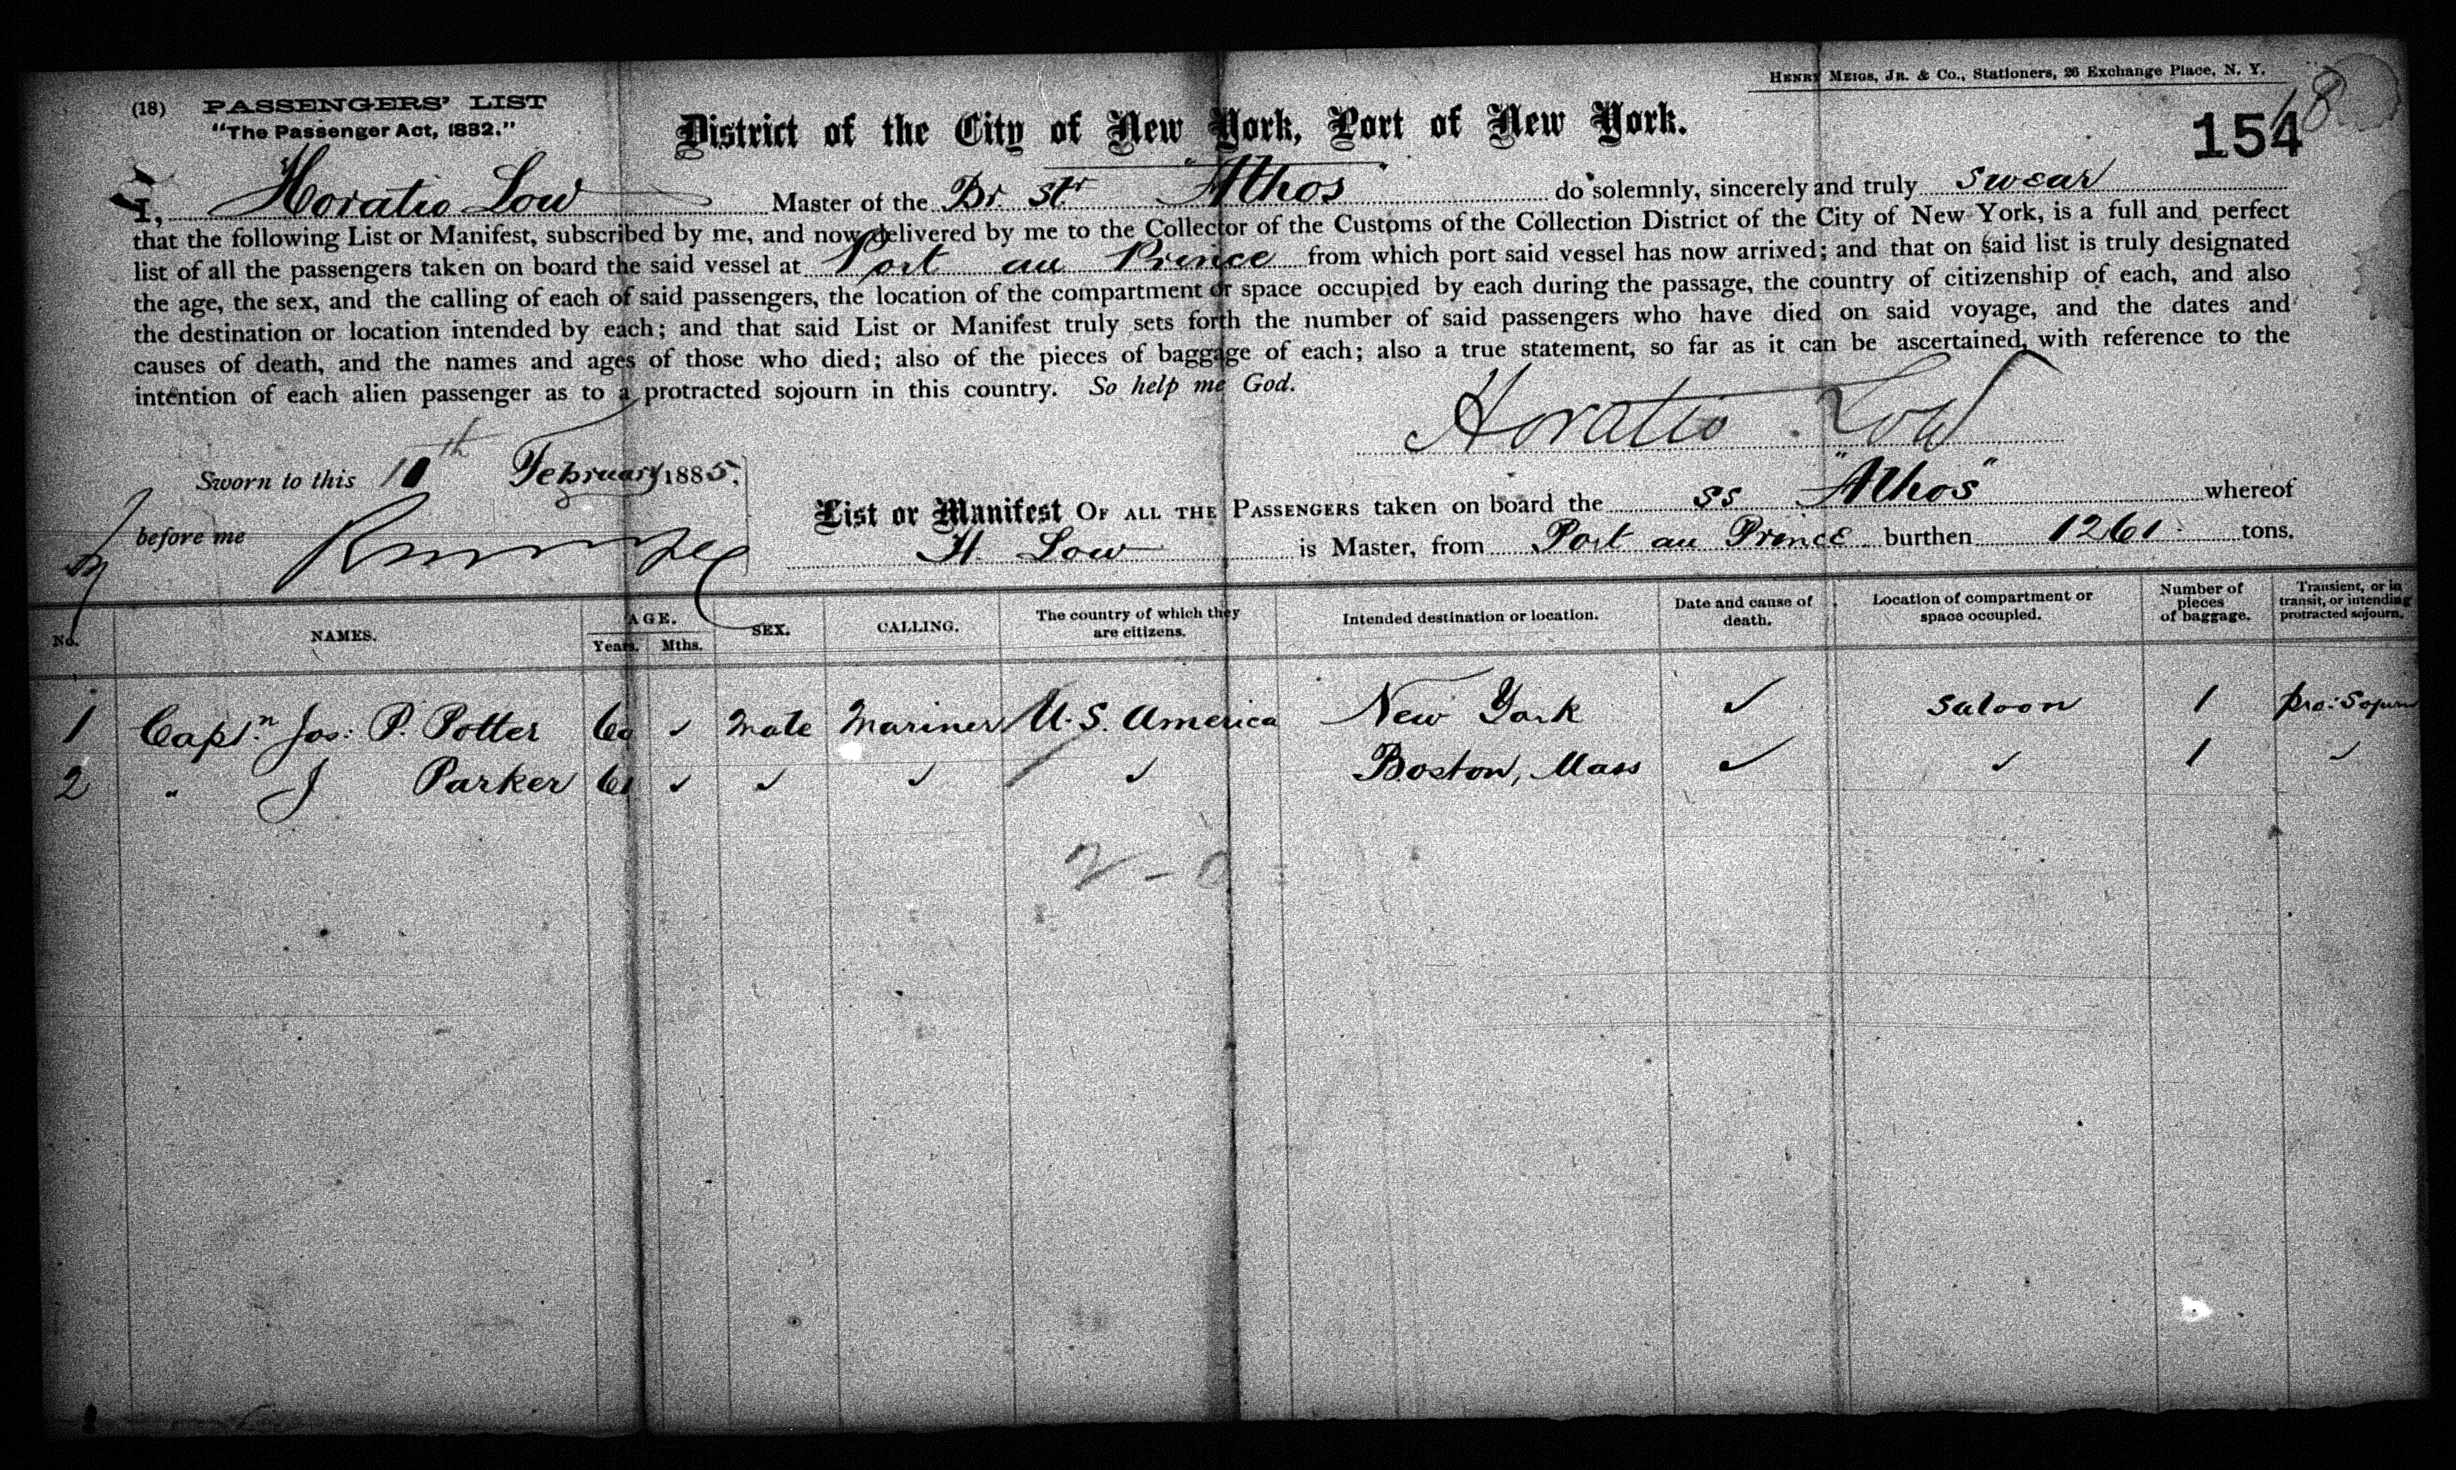 HENRY MEIGS, JR. & CO., Stationers, 26 Exchange Place, N. Y.
(18) PASSENGERS' LIST
"The Passenger Act, 1882."
District of the City of New York, Port of New York.
154
I, Horatio Low Master of the Br Str "Athos" do solemnly, sincerely and truly swear
that the following List or Manifest, subscribed by me, and now delivered by me to the Collector of the Customs of the Collection District of the City of New York, is a full and perfect
list of all the passengers taken on board the said vessel at Port au Prince from which port said vessel has now arrived; and that on said list is truly designated
the age, the sex, and the calling of each of said passengers, the location of the compartment or space occupied by each during the passage, the country of citizenship of each, and also
the destination or location intended by each; and that said List or Manifest truly sets forth the number of said passengers who have died on said voyage, and the dates and
causes of death, and the names and ages of those who died; also of the pieces of baggage of each; also a true statement, so far as it can be ascertained, with reference to the
intention of each alien passenger as to a protracted sojourn in this country. So help me God.
Horatio Low
Sworn to this th February 1885,
before me
List or Manifest OF ALL THE PASSENGERS taken on board the SS "Athos" whereof
H. Low is Master, from Port au Prince burthen 1261 tons.
No. NAMES. AGE. Years. Mths. SEX. CALLING. The country of which they are citizens. Intended destination or location. Date and cause of death. Location of compartment or space occupied. Number of pieces of baggage. Transient, or in transit, or intending protracted sojourn.
1 Captn Jos: P. Potter ✓ Male Mariner U. S. America New York ✓ Saloon 1 pro: Sojurn
2 " J Parker 61 ✓ ✓ ✓ ✓ Boston, Mass ✓ ✓ 1 ✓
2 - 0